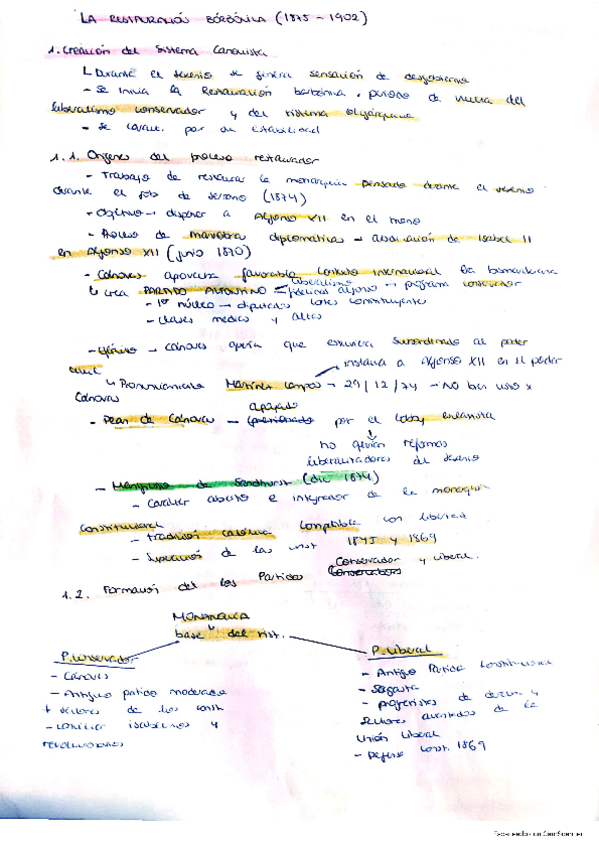 LA RESTAURACIÓN BORBÓNICA (1875 - 1902)
1. Creación del Sistema Canovista
Durante el sexenio se genera sensación de desgobierno
- Se inicia la Restauración borbónica, periodo de vuelta del
liberalismo conservador y del sistema oligárquico
- Se caract. por su estabilidad
1.1. Orígenes del proceso restaurador
- Trabajo de restaurar la monarquía pensado durante el sexenio
durante el gob de Serrano (1874)
- Objetivo → disponer a Alfonso XII en el trono
- Proceso de maniobra diplomática → abdicación de Isabel II
en Alfonso XII (junio 1870)
- Cánovas aprovecha favorable contexto internacional
crea PARTIDO ALFONSINO liberalismo → programa conservador
- 1er núcleo → diputados cortes constituyentes
- clases medias y altas
- Ejército → Cánovas quería que estuviera subordinado al poder
civil
instaura a Alfonso XII en el poder
Pronunciamiento Martínez Campos - 29/12/74 - NO bien visto x
Cánovas
- Plan de Cánovas - apoyado por el lobby esclavista
no querían reformas
liberalizadoras del sexenio
- Manifiesto de Sandhurst (dic 1874)
- Carácter abierto e integrador de la monarquía
constitucional
- tradición católica compatible con libertad
- Superación de las const 1845 y 1869
1.2. Formación de los Partidos Conservador y Liberal.
MONARQUÍA
base del sist.
P. Conservador
- Cánovas
- Antiguo partido moderado
+ sectores de los const
- conciliar isabelinos y
revolucionarios
P. Liberal
- Antiguo Partido Constitucional
- Sagasta
- progresistas de derecha y
sectores avanzados de la
Unión Liberal
- Defensa const. 1869
Escaneado con CamScanner